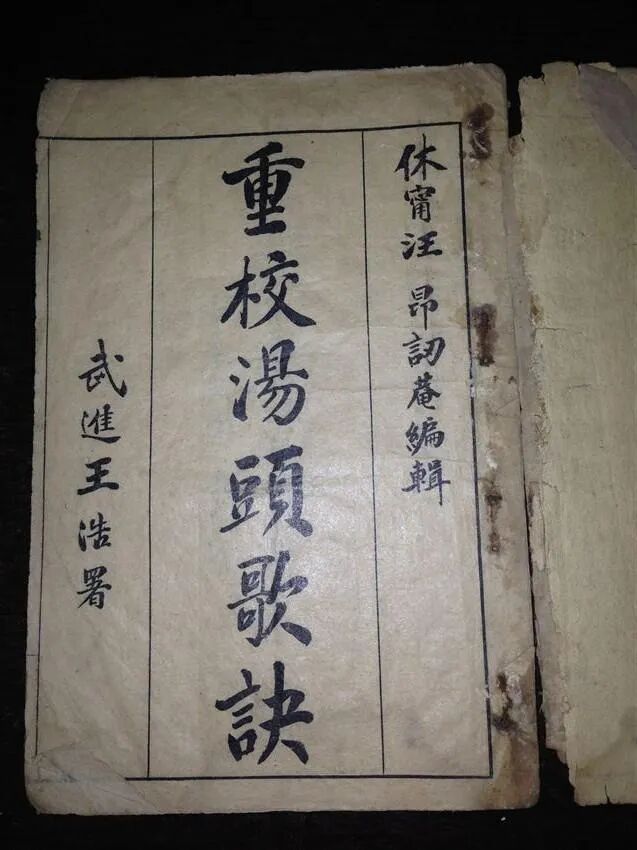 休甯汪 昂訒菴編輯
重校湯頭歌訣
武進王浩署